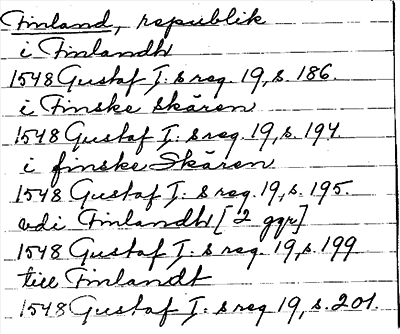 Finland, republik
i Finlandh
1548 Gustaf I:s reg. 19, s. 186.
i Finske skären
1548 Gustaf I:s reg. 19, s. 194.
i finske Skären
1548 Gustaf I:s reg. 19, s. 195.
vdi Finlandh [2 ggr]
1548 Gustaf I:s reg. 19, s. 199
till Finlandt
1548 Gustaf I:s reg 19, s. 201.